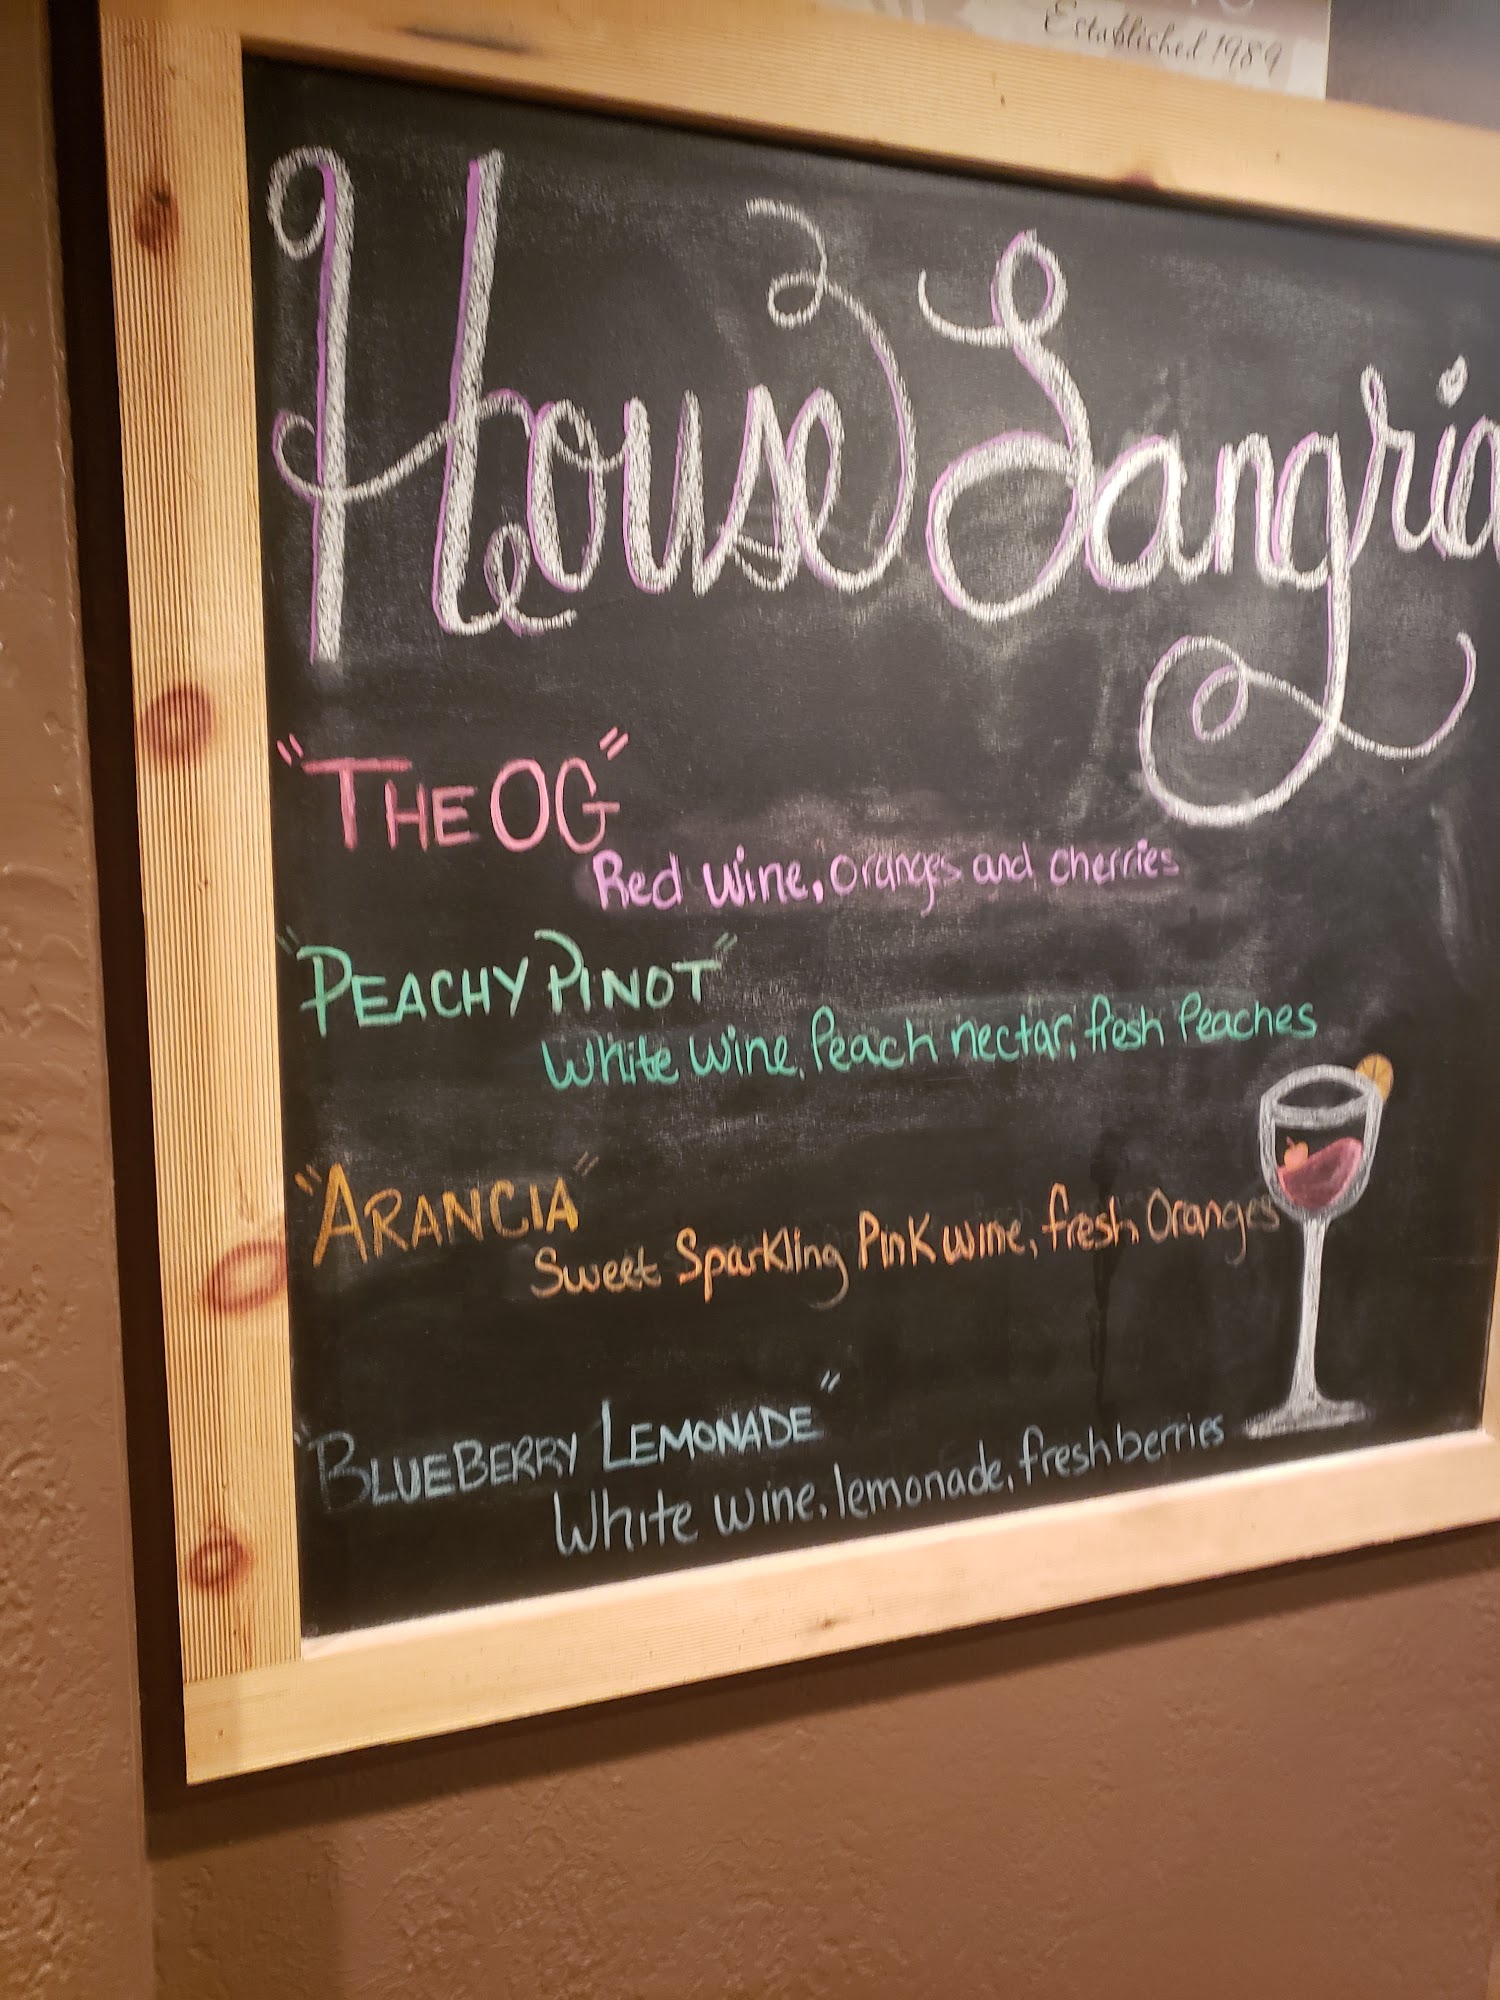 Established 1989
House Sangria
"THE OG"
Red Wine, Oranges and Cherries
"PEACHY PINOT"
White Wine, Peach nectar, fresh Peaches
"ARANCIA"
Sweet Sparkling Pink wine, fresh Oranges
"BLUEBERRY LEMONADE"
White Wine, lemonade, fresh berries